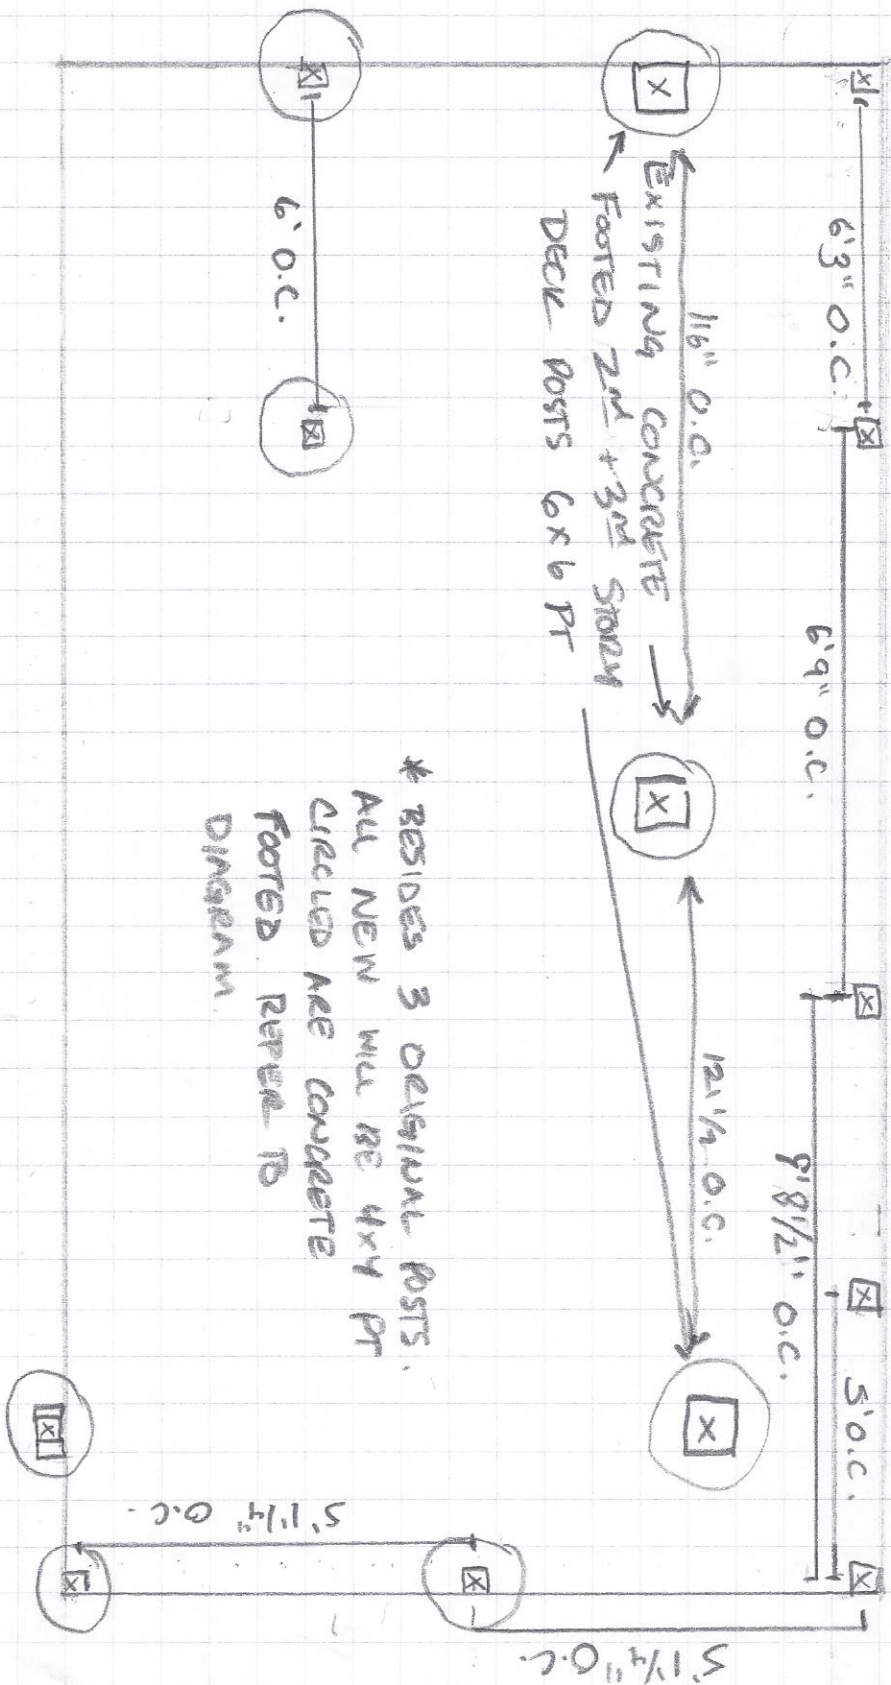 6'3" O.C.
6'9" O.C.
9'8 1/2" O.C.
5' O.C.
116" O.C.
121 1/2 O.C.
EXISTING CONCRETE
FOOTED 2ND + 3RD STORY
DECK POSTS 6x6 PT
6' O.C.
* BESIDES 3 ORIGINAL POSTS.
ALL NEW WILL BE 4x4 PT
CIRCLED ARE CONCRETE
FOOTED REFER TO
DIAGRAM
5'1 1/4" O.C.
5'1 1/4" O.C.
X
X
X
X
X
X
X
X
X
X
X
X
X